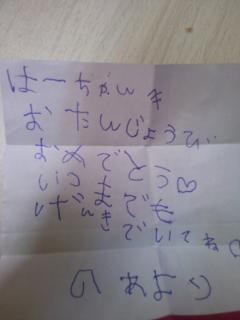 はーちゃん
おたんじょうび
おめでとう♡
いつまでも
げんきでいてね
のあより